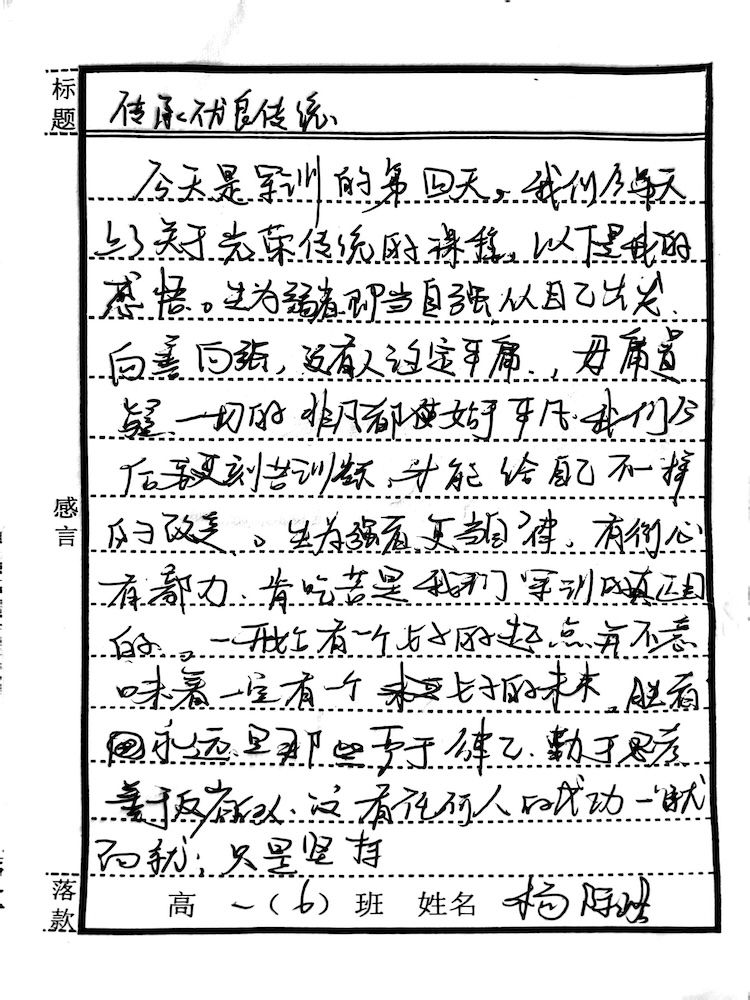 标题
传承优良传统
今天是军训的第四天,我们今天
上了关于光荣传统的课程,以下是我的
感悟。生为弱者即当自强,从自己出发,
向善向强,没有人注定平庸,毋庸置
疑,一切的非凡都始于平凡,我们今
后要刻苦训练,才能给自己不一样
的改变。生为强者更当自律,有
有毅力,肯吃苦是我们军训的真正目
的。一开始有一个好的起点并不意
味着一定有一个好的未来,胜者
永远是那些严于律己,勤于思考
善于反省的人,没有任何人的成功一蹴
而就;只是坚持
感言
落款
高一(6)班 姓名 杨